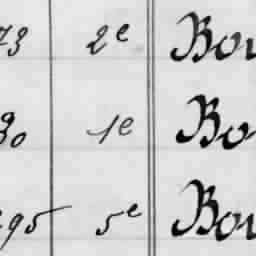 73 2e Bou
30 1e Bo
95 5e Bou